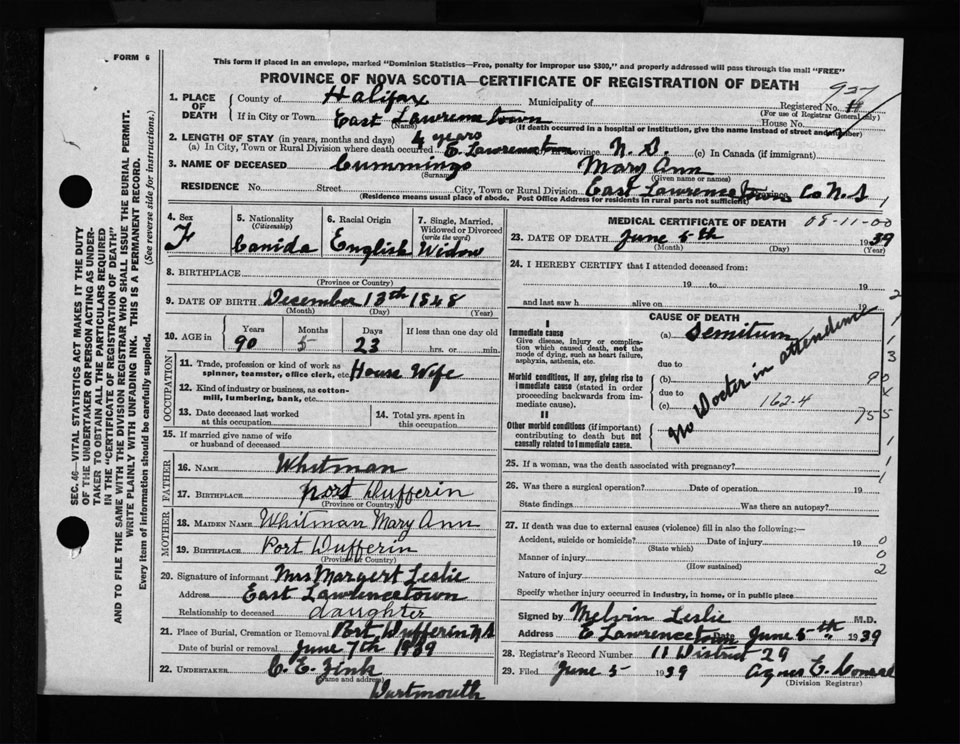 FORM 6
This form if placed in an envelope, marked "Dominion Statistics—Free, penalty for improper use $300," and properly addressed will pass through the mail "FREE"
PROVINCE OF NOVA SCOTIA—CERTIFICATE OF REGISTRATION OF DEATH
927
1. PLACE OF DEATH
County of Halifax Municipality of Registered No.
(For use of Registrar General only)
If in City or Town East Lawrencetown House No.
(Name) (If death occurred in a hospital or institution, give the name instead of street and number)
2. LENGTH OF STAY (in years, months and days) 4 years
(a) In City, Town or Rural Division where death occurred E. Lawrencetown (b) In Province N. S. (c) In Canada (if immigrant)
3. NAME OF DECEASED Cummings Mary Ann
(Surname) (Given name or names)
RESIDENCE No. Street City, Town or Rural Division East Lawrencetown Province Co N.S 1
(Residence means usual place of abode. Post Office Address for residents in rural parts not sufficient)
4. Sex
F
5. Nationality (Citizenship)
Canida
6. Racial Origin
English
7. Single, Married, Widowed or Divorced (write the word)
Widow
8. BIRTHPLACE
(Province or County)
9. DATE OF BIRTH December 13th 1848
(Month) (Day) (Year)
10. AGE in Years Months Days If less than one day old
90 5 23 hrs. or min.
OCCUPATION
11. Trade, profession or kind of work as spinner, teamster, office clerk, etc. House Wife
12. Kind of industry or business, as cotton-mill, lumbering, bank, etc.
13. Date deceased last worked at this occupation
14. Total yrs. spent in this occupation
15. If married give name of wife or husband of deceased
FATHER
16. NAME Whitman
17. BIRTHPLACE Port Dufferin
(Province or Country)
MOTHER
18. MAIDEN NAME Whitman Mary Ann
19. BIRTHPLACE Port Dufferin
(Province or Country)
20. Signature of informant Mrs Margert Leslie
Address East Lawrencetown
Relationship to deceased daughter
21. Place of Burial, Cremation or Removal Port Dufferin N S
Date of burial or removal June 7th 1939
22. UNDERTAKER C. E. Zink
(Name and address)
Dartmouth
MEDICAL CERTIFICATE OF DEATH
05-11-00
23. DATE OF DEATH June 5th 1939
(Month) (Day) (Year)
24. I HEREBY CERTIFY that I attended deceased from:
19 to 19
and last saw h alive on 19
CAUSE OF DEATH
I
Immediate cause
Give disease, injury or complication which caused death, not the mode of dying, such as heart failure, asphyxia, asthenia, etc.
(a) Semitum
due to
Morbid conditions, if any, giving rise to immediate cause (stated in order proceeding backwards from immediate cause).
(b)
due to
(c) 162.4
II
Other morbid conditions (if important) contributing to death but not causally related to immediate cause.
No Docter in attendence
25. If a woman, was the death associated with pregnancy?
26. Was there a surgical operation? Date of operation 19
State findings Was there an autopsy?
27. If death was due to external causes (violence) fill in also the following:—
Accident, suicide or homicide? Date of injury 19 0
(State which)
Manner of injury 0
(How sustained)
Nature of injury 2
Specify whether injury occurred in industry, in home, or in public place
Signed by Melvin Leslie M.D.
Address E Lawrencetown Date June 5th 1939
28. Registrar's Record Number 11 District 29
29. Filed June 5 1939 Agnes E.
(Division Registrar)
SEC. 46—VITAL STATISTICS ACT MAKES IT THE DUTY
OF THE UNDERTAKER OR PERSON ACTING AS UNDER-
TAKER TO OBTAIN ALL THE PARTICULARS REQUIRED
IN THE "CERTIFICATE OF REGISTRATION OF DEATH"
AND TO FILE THE SAME WITH THE DIVISION REGISTRAR WHO SHALL ISSUE THE BURIAL PERMIT.
WRITE PLAINLY WITH UNFADING INK. THIS IS A PERMANENT RECORD.
Every item of information should be carefully supplied. (See reverse side for instructions.)